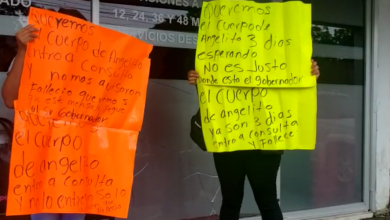 12, 24, 36 y 48 M
VICIOS DES
Queremos
el cuerpo de Angelito
entro a consulta
y nomas avisaron
Fallecio queremos
el cuerpo
de angelito
entra a consulta
Y no lo
Queremos
el cuerpo de
Angelito 3 dias
esperando
no es Justo
Donde esta el gobernador
el cuerpo
de angelito
ya son 3 dias
entro a consulta
y Fallece